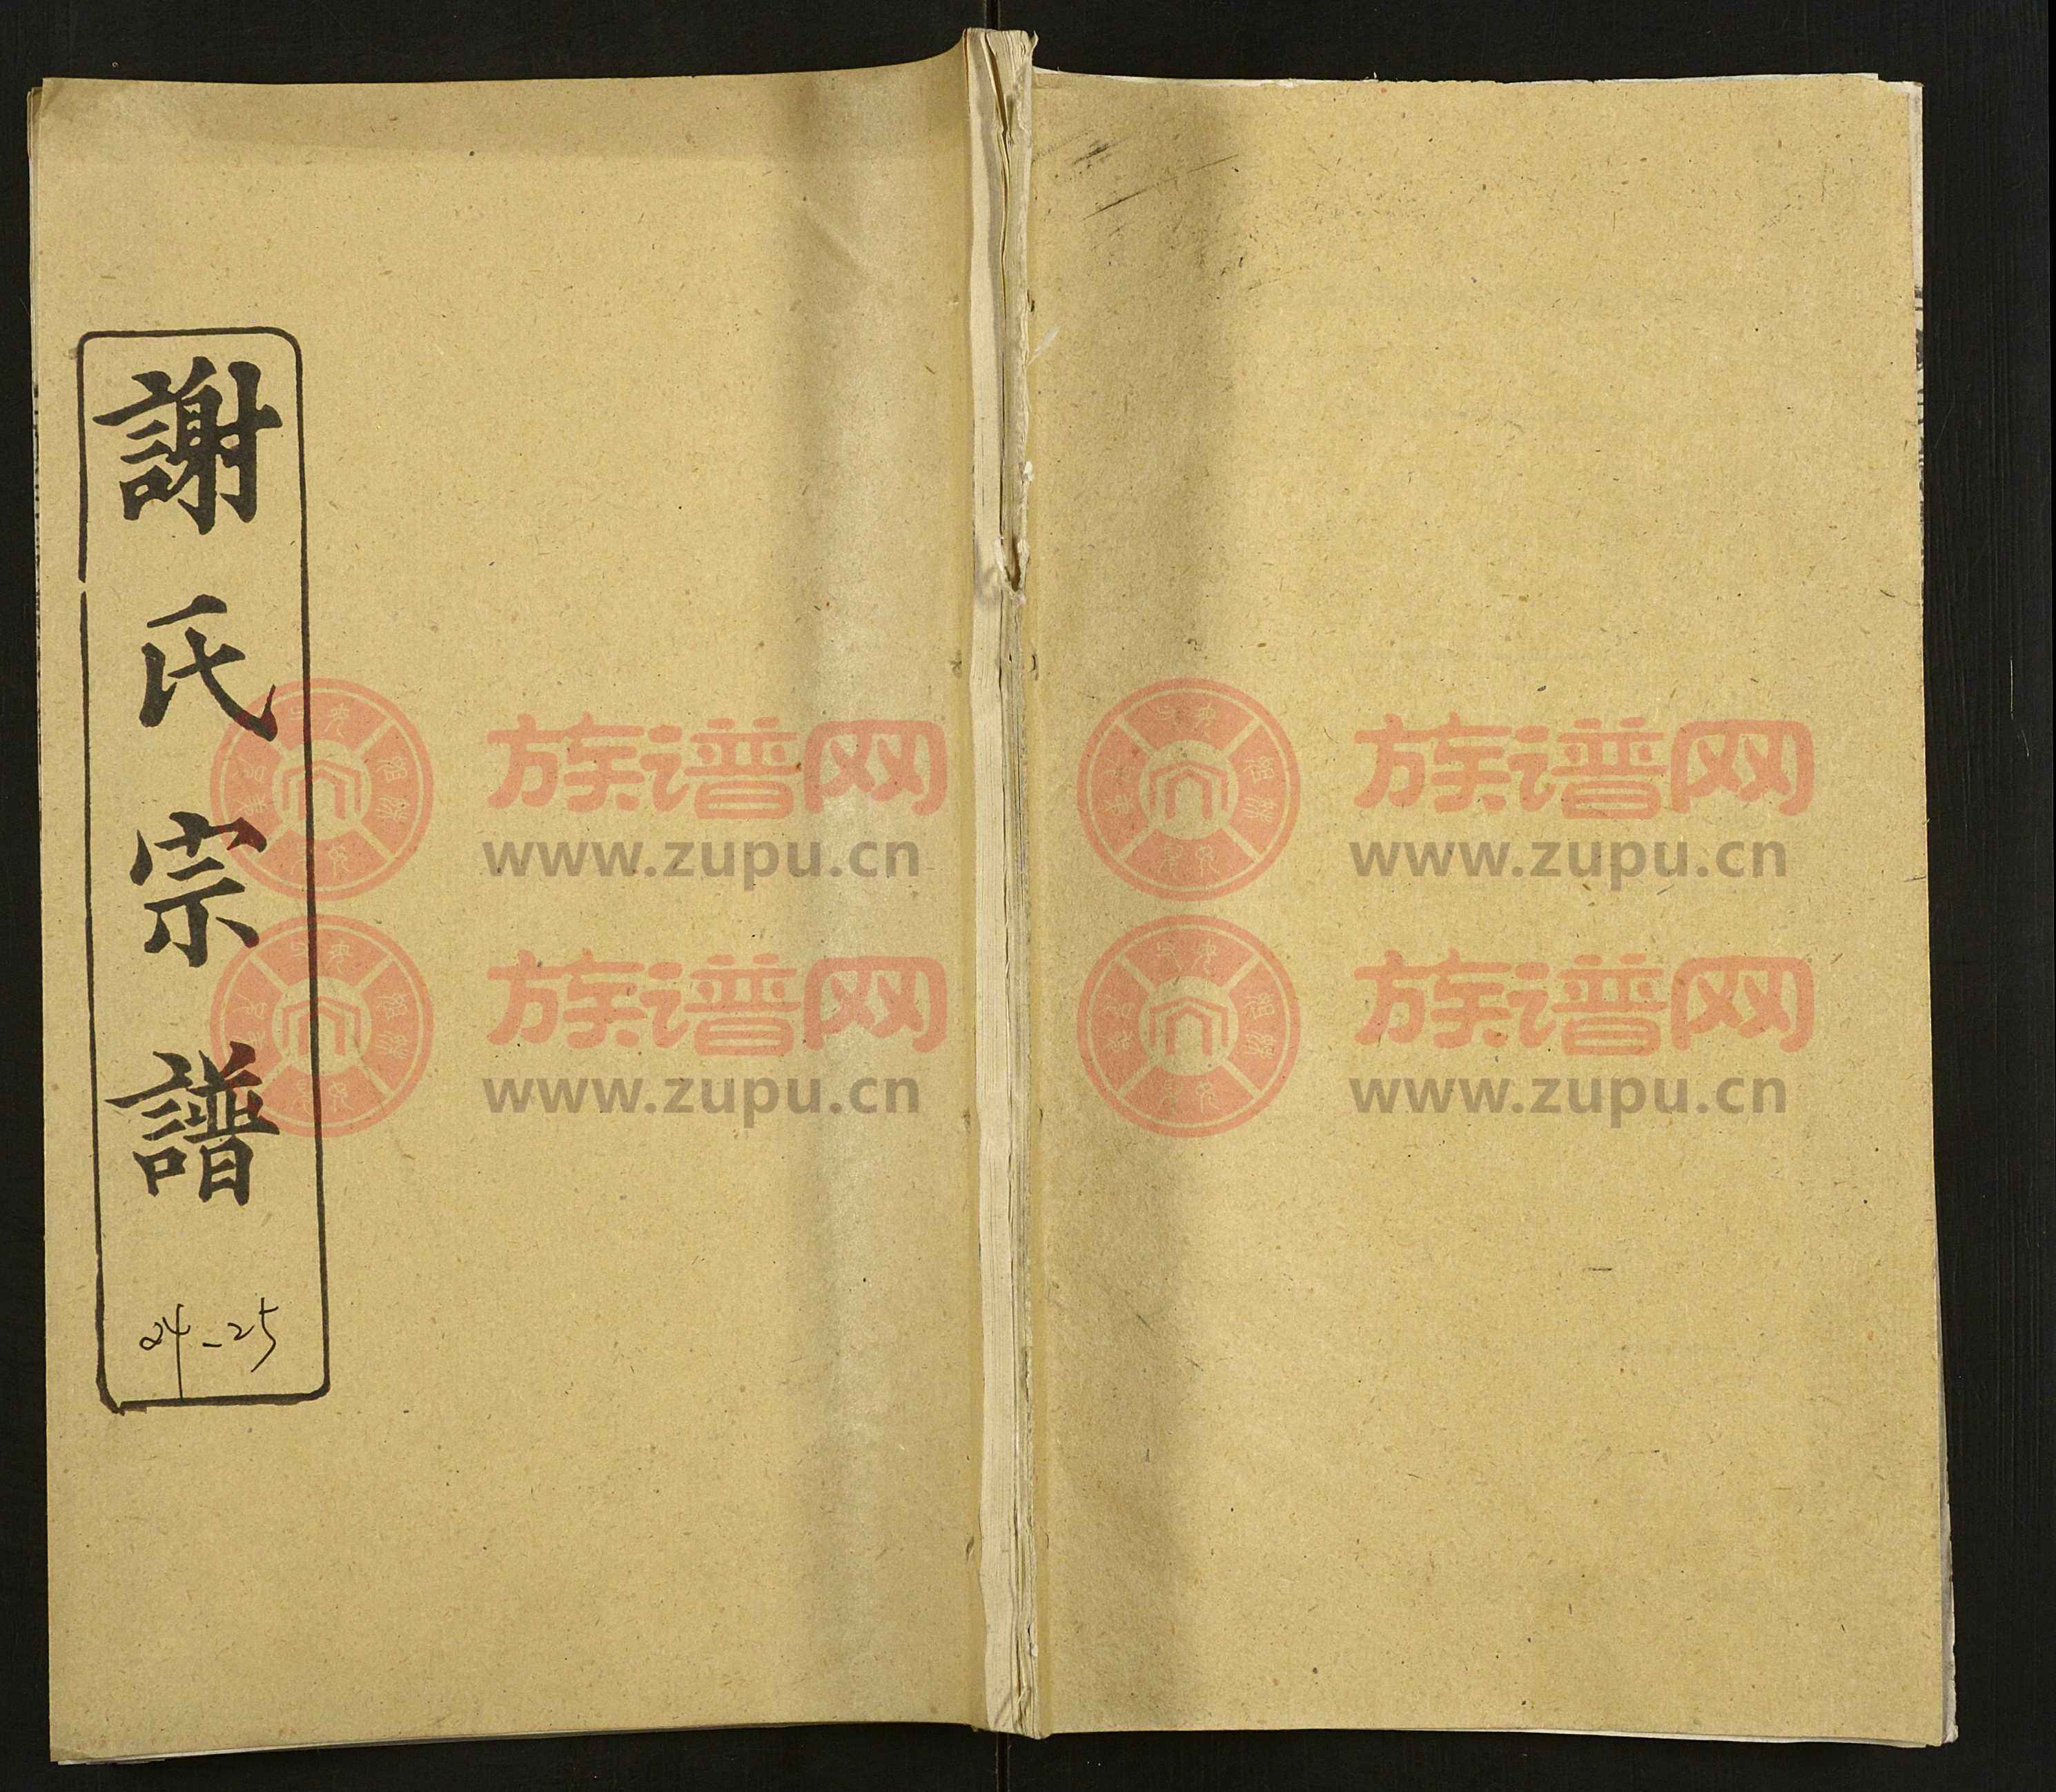 謝氏宗譜
24-25
族谱网
www.zupu.cn
族谱网
www.zupu.cn
族谱网
www.zupu.cn
族谱网
www.zupu.cn